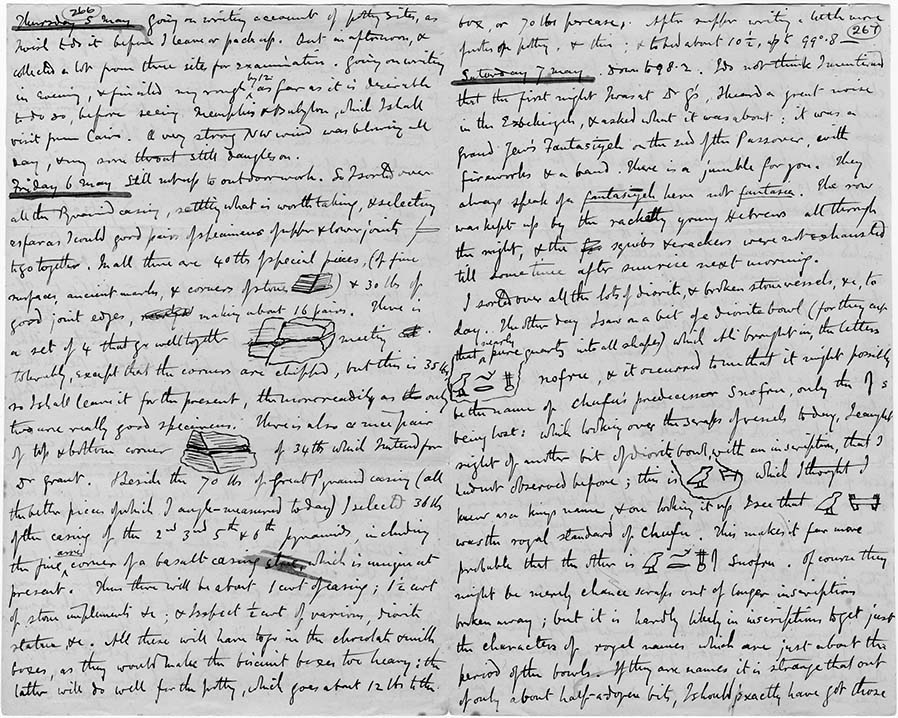 266
Thursday 5 May going on writing account of potty sites, as
I wish to do it before I leave or pack up. Out in afternoon, &
collected a lot from three sites for examination. Going on writing
in evening, & finished my rough, by 12 as far as it is desirable
to do so, before seeing Memphis & Babylon, which I shall
visit from Cairo. A very strong NW wind was blowing all
day, & my sore throat still dangles on.
Friday 6 May Still not up to outdoor work. So I sorted over
all the Pyramid casing, settling what is worth taking, & selecting
as far as I could good pairs of specimens of upper & lower joints
to go together. In all there are 40 lbs of special pieces, (of fine
surfaces, ancient marks, & corners of stone) & 30 lbs of
good joint edges, making about 16 pairs. There is
a set of 4 that go well together meeting
tolerably, except that the corners are chipped, but this is 35 lbs
so I shall leave it for the present, the more readily as the only
two are really good specimens. There is also a nice pair
of top & bottom corner of 34 lbs which I intend for
Dr Grant. Beside the 70 lbs of Great Pyramid casing (all
the better pieces of which I angle-measured today) I selected 36 lbs
of the casing of the 2nd 3rd 5th & 6th pyramids, including
the fine corner of a basalt casing stone which is unique at
present. Thus there will be about 1 cwt of casing; 1½ cwt
of stone implements &c; & I expect ½ cwt of various, diorite
statue, &c. All these will have to go in the chocolate & milk
boxes, as they would make the biscuit boxes too heavy; the
latter will do well for the potty, which goes about 12 lbs to the
267
box, or 70 lbs per case. After supper writing a little more
notes on potty, & this; & to bed about 10½, up to 99°.8
Saturday 7 May Down to 98.2. I do not think I mentioned
that the first night I was at Dr G's, I heard a great noise
in the Esbekiyeh, & asked what it was about: it was a
grand Jew's Fantasiyeh on the end of the Passover, with
fireworks & a band. There is a jumble for you. They
always speak of a fantasiyeh here not fantasia. The row
was kept up by the racketty young Hebrews all through
the night, & the squibs & crackers were not exhausted
till some time after sunrise next morning.
I sorted over all the lots of diorite, & broken stone vessels, &c, to
day. The other day I saw on a bit of a diorite bowl (for they cut
that & pure nearly quartz into all shapes) which Ali brought in, the letters
nofru, & it occurred to me that it might possibly
be the name of Chufu's predecessor Snofru, only the s
being lost: while looking over the scraps of vessels today, I caught
sight of another bit of diorite bowl, with an inscription, that I
had not observed before; this is which I thought I
knew as a kings name & on looking it up I see that
was the royal standard of Chufu. This makes it far more
probable that the other is Snofru. Of course they
might be merely chance scraps out of longer inscriptions
broken away; but it is hardly likely in inscriptions to get just
the characters of royal names which are just about the
period of the bowls. If they are names it is strange that out
of only about half-a-dozen bits, I should exactly have got those